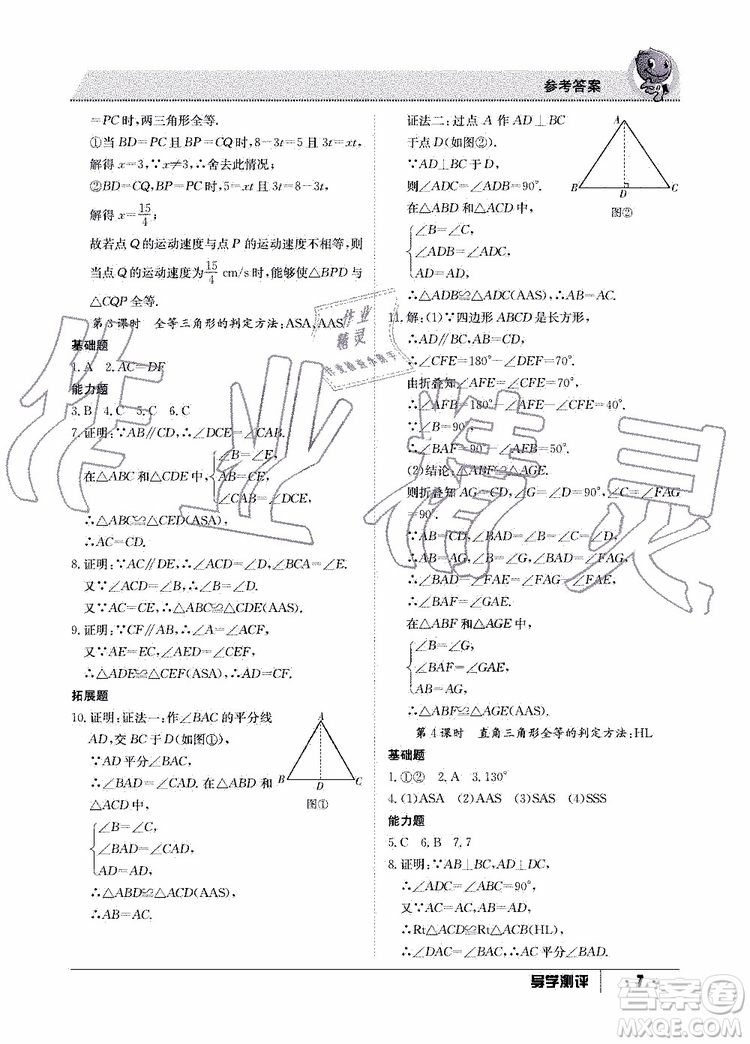 参考答案
=PC时,两三角形全等.
①当BD=PC且BP=CQ时,8-3t=5且3t=xt,
解得x=3,∵x≠3,∴舍去此情况;
②BD=CQ,BP=PC时,5=xt且3t=8-3t,
解得x=15/4;
故若点Q的运动速度与点P的运动速度不相等,则
当点Q的运动速度为15/4 cm/s时,能够使△BPD与
△CQP全等.
第3课时 全等三角形的判定方法:ASA,AAS
基础题
1.A 2.AC=DF
能力题
3.B 4.C 5.C 6.C
7.证明:∵AB∥CD,∴∠DCE=∠CAB.
在△ABC和△CDE中,{∠B=∠E,
∠CAB=∠DCE,
∴△ABC≌△CED(ASA),
∴AC=CD.
8.证明:∵AC∥DE,∴∠ACD=∠D,∠BCA=∠E.
又∵∠ACD=∠B,∴∠B=∠D.
又∵AC=CE,∴△ABC≌△CDE(AAS).
9.证明:∵CF∥AB,∴∠A=∠ACF.
又∵AE=EC,∠AED=∠CEF,
∴△ADE≌△CFE(ASA).
拓展题
10.证明:证法一:作∠BAC的平分线
AD,交BC于点D(如图①),
∵AD平分∠BAC,
∴∠BAD=∠CAD.
在△ABD和
△ACD中,
{∠B=∠C,
∠BAD=∠CAD,
AD=AD,
∴△ABD≌△ACD(AAS),
∴AB=AC.
A
B
D
C
图①
证法二:过点A作AD⊥BC
于点D(如图②).
∵AD⊥BC于点D,
则∠ADC=∠ADB=90°.
在△ABD和△ACD中,
{∠B=∠C,
∠ADB=∠ADC,
AD=AD,
∴△ABD≌△ACD(AAS),∴AB=AC.
A
B
D
C
图②
11.解:(1)∵四边形ABCD是长方形,
∴AD∥BC,∴∠CFE+∠DEF=180°,
∴∠CFE=180°-∠DEF=70°.
由折叠知:∠AFE=∠CFE=70°,
∴∠AFB=180°-∠AFE-∠CFE=40°.
又∵∠B=90°,
∴∠BAF=90°-∠AFB=50°.
(2)结论:△ABF≌△AGE.
则折叠知:AG=CD,∠GAF=∠C=90°,∠G=∠D
=90°.
∵AB=CD,∠B=90°,∠BAD=90°,
∴AB=AG,∠B=∠G,∠BAD=∠FAG,
∴∠BAF=∠GAE.
在△ABF和△AGE中,
{∠B=∠G,
∠BAF=∠GAE,
AB=AG,
∴△ABF≌△AGE(ASA).
第4课时 直角三角形全等的判定方法:HL
基础题
1.①② 2.A 3.130°
4.(1)ASA (2)AAS (3)SAS (4)SSS
能力题
5.C 6.B 7.7
8.证明:∵AB⊥BC,AD⊥DC,
∴∠ADC=∠ABC=90°,
又∵AC=AC,AB=AD,
∴Rt△ACD≌Rt△ACB(HL),
∴∠DAC=∠BAC,∴AC平分∠BAD.
导学测评
7
作业精灵
作业
精灵
答案圈
MXQE.COM